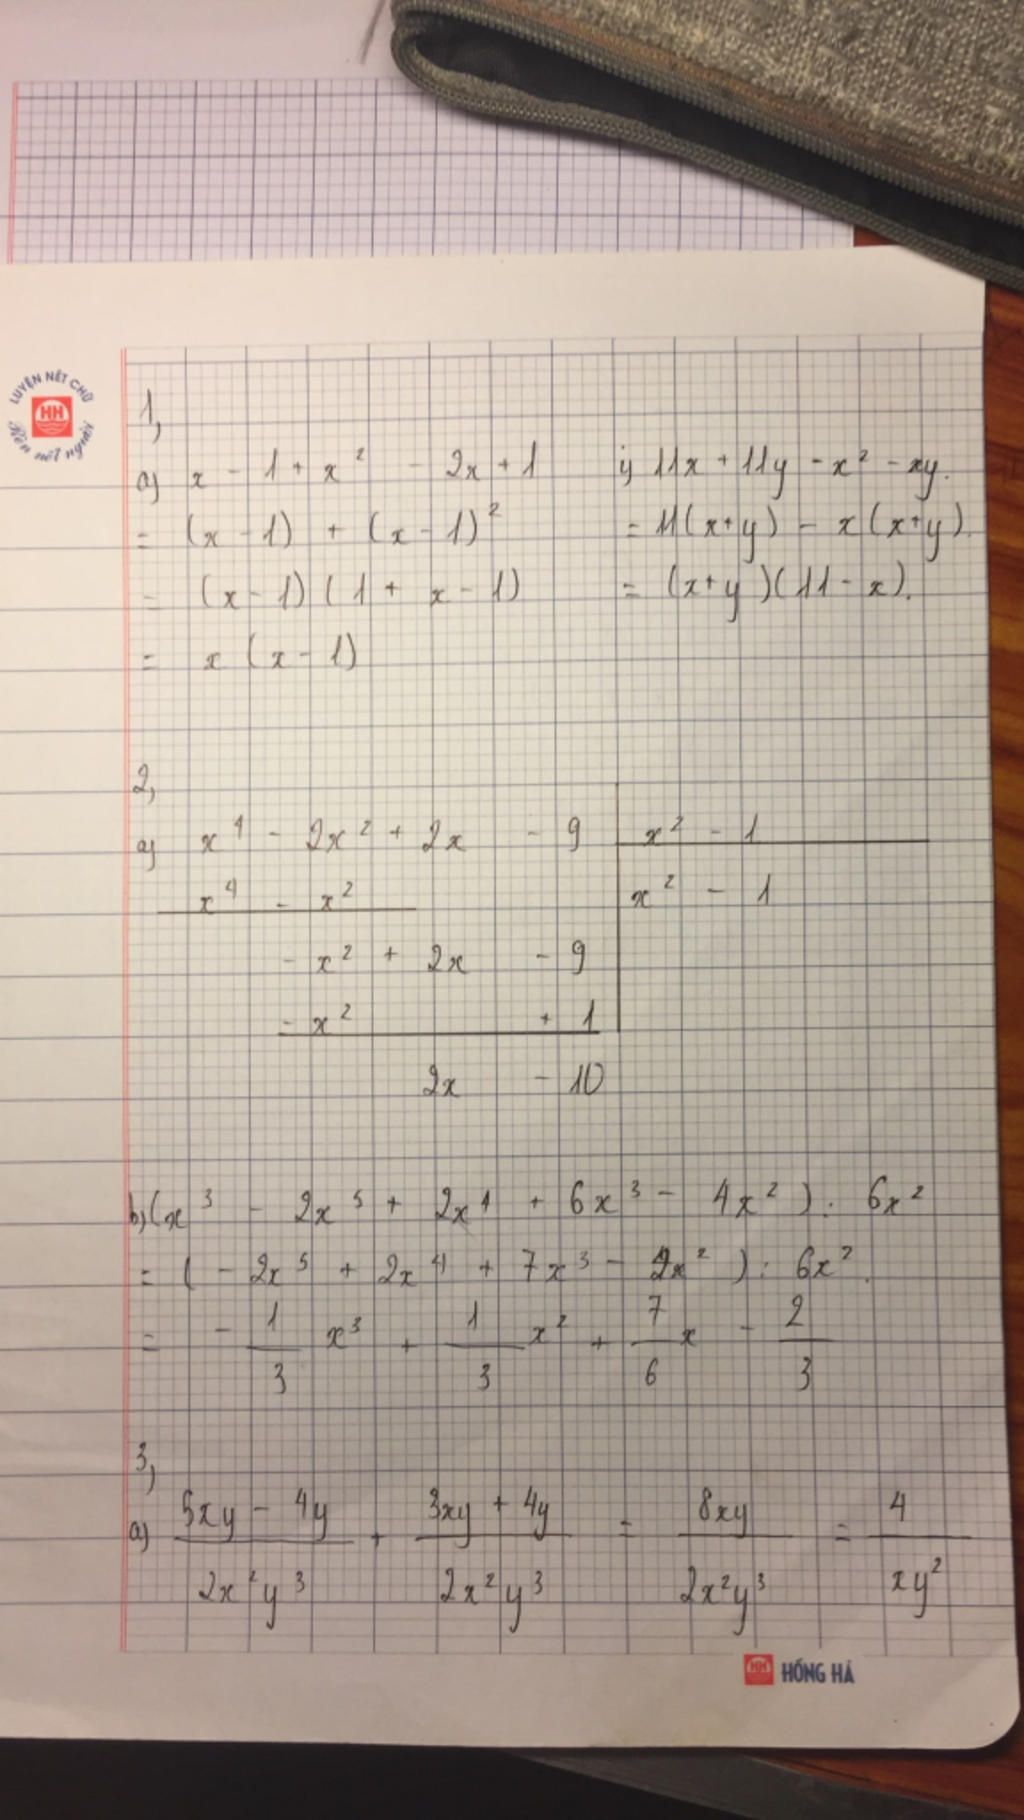 LUYỆN NÉT CHỮ
HH
Rèn nết người
1,
a) x - 1 + x² - 2x + 1
= (x - 1) + (x - 1)²
= (x - 1)(1 + x - 1)
= x(x - 1)
i) 11x + 11y - x² - xy.
= 11(x+y) - x(x+y).
= (x+y)(11 - x).
2,
a) x⁴ - 2x² + 2x - 9 | x² - 1
x⁴ - x² | x² - 1
- x² + 2x - 9
- x² + 1
2x - 10
b) (x³ - 2x⁵ + 2x⁴ + 6x³ - 4x²) : 6x²
= (- 2x⁵ + 2x⁴ + 7x³ - 4x²) : 6x².
= - 1/3 x³ + 1/3 x² + 7/6 x - 2/3
3,
a) (5xy - 4y)/(2x²y³) + (3xy + 4y)/(2x²y³) = 8xy/(2x²y³) = 4/(xy²)
HH HỒNG HÀ